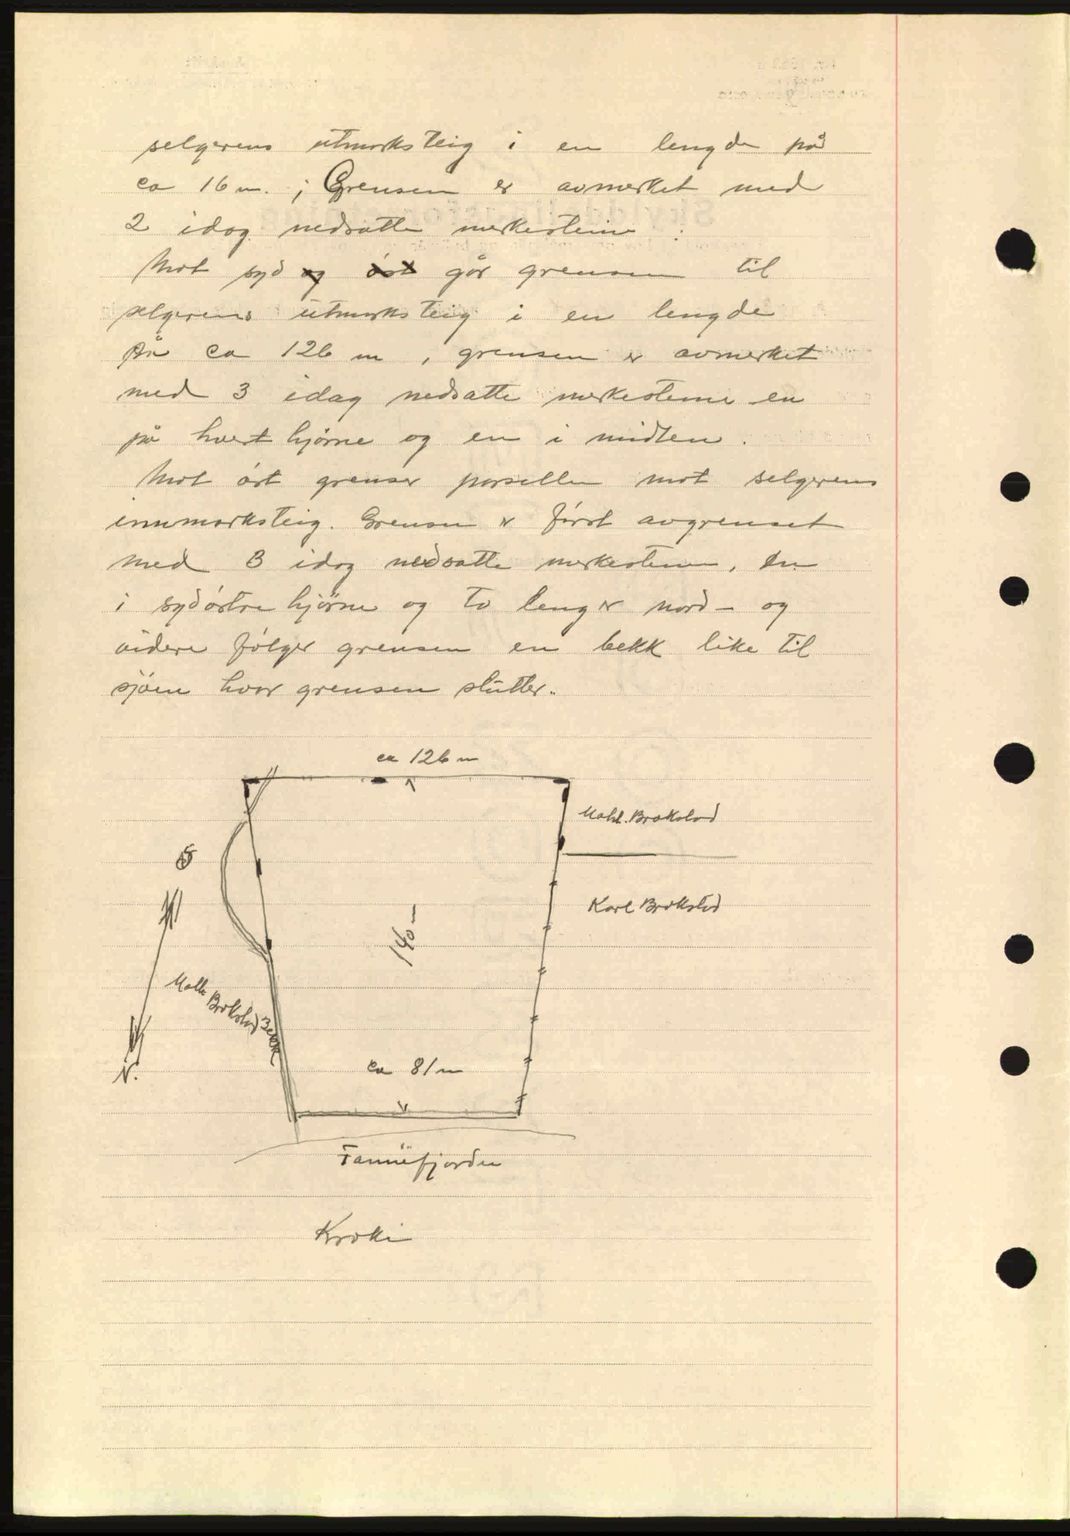 selgerens utmarksteig i en lengde på
ca 16 m. ; Grensen er avmerket med
2 idag nedsatte merkestene.
Mot syd og öst går grensen til
selgerens utmarksteig i en lengde
på ca 126 m, grensen er avmerket
med 3 idag nedsatte merkestene en
på hvert hjörne og en i midten.
Mot öst grenser parsellen mot selgerens
innmarksteig. Grensen er först avgrenset
med 3 idag nedsatte merkestene, en
i sydöstre hjörne og to lenger nord - og
videre fölger grensen en bekk like til
sjöen hvor grensen slutter.
ca 126 m
Brokstad
S
Karl Brokstad
140 m
Brokstad
Bekk
ca 81 m
N.
Fannefjorden
Kroki